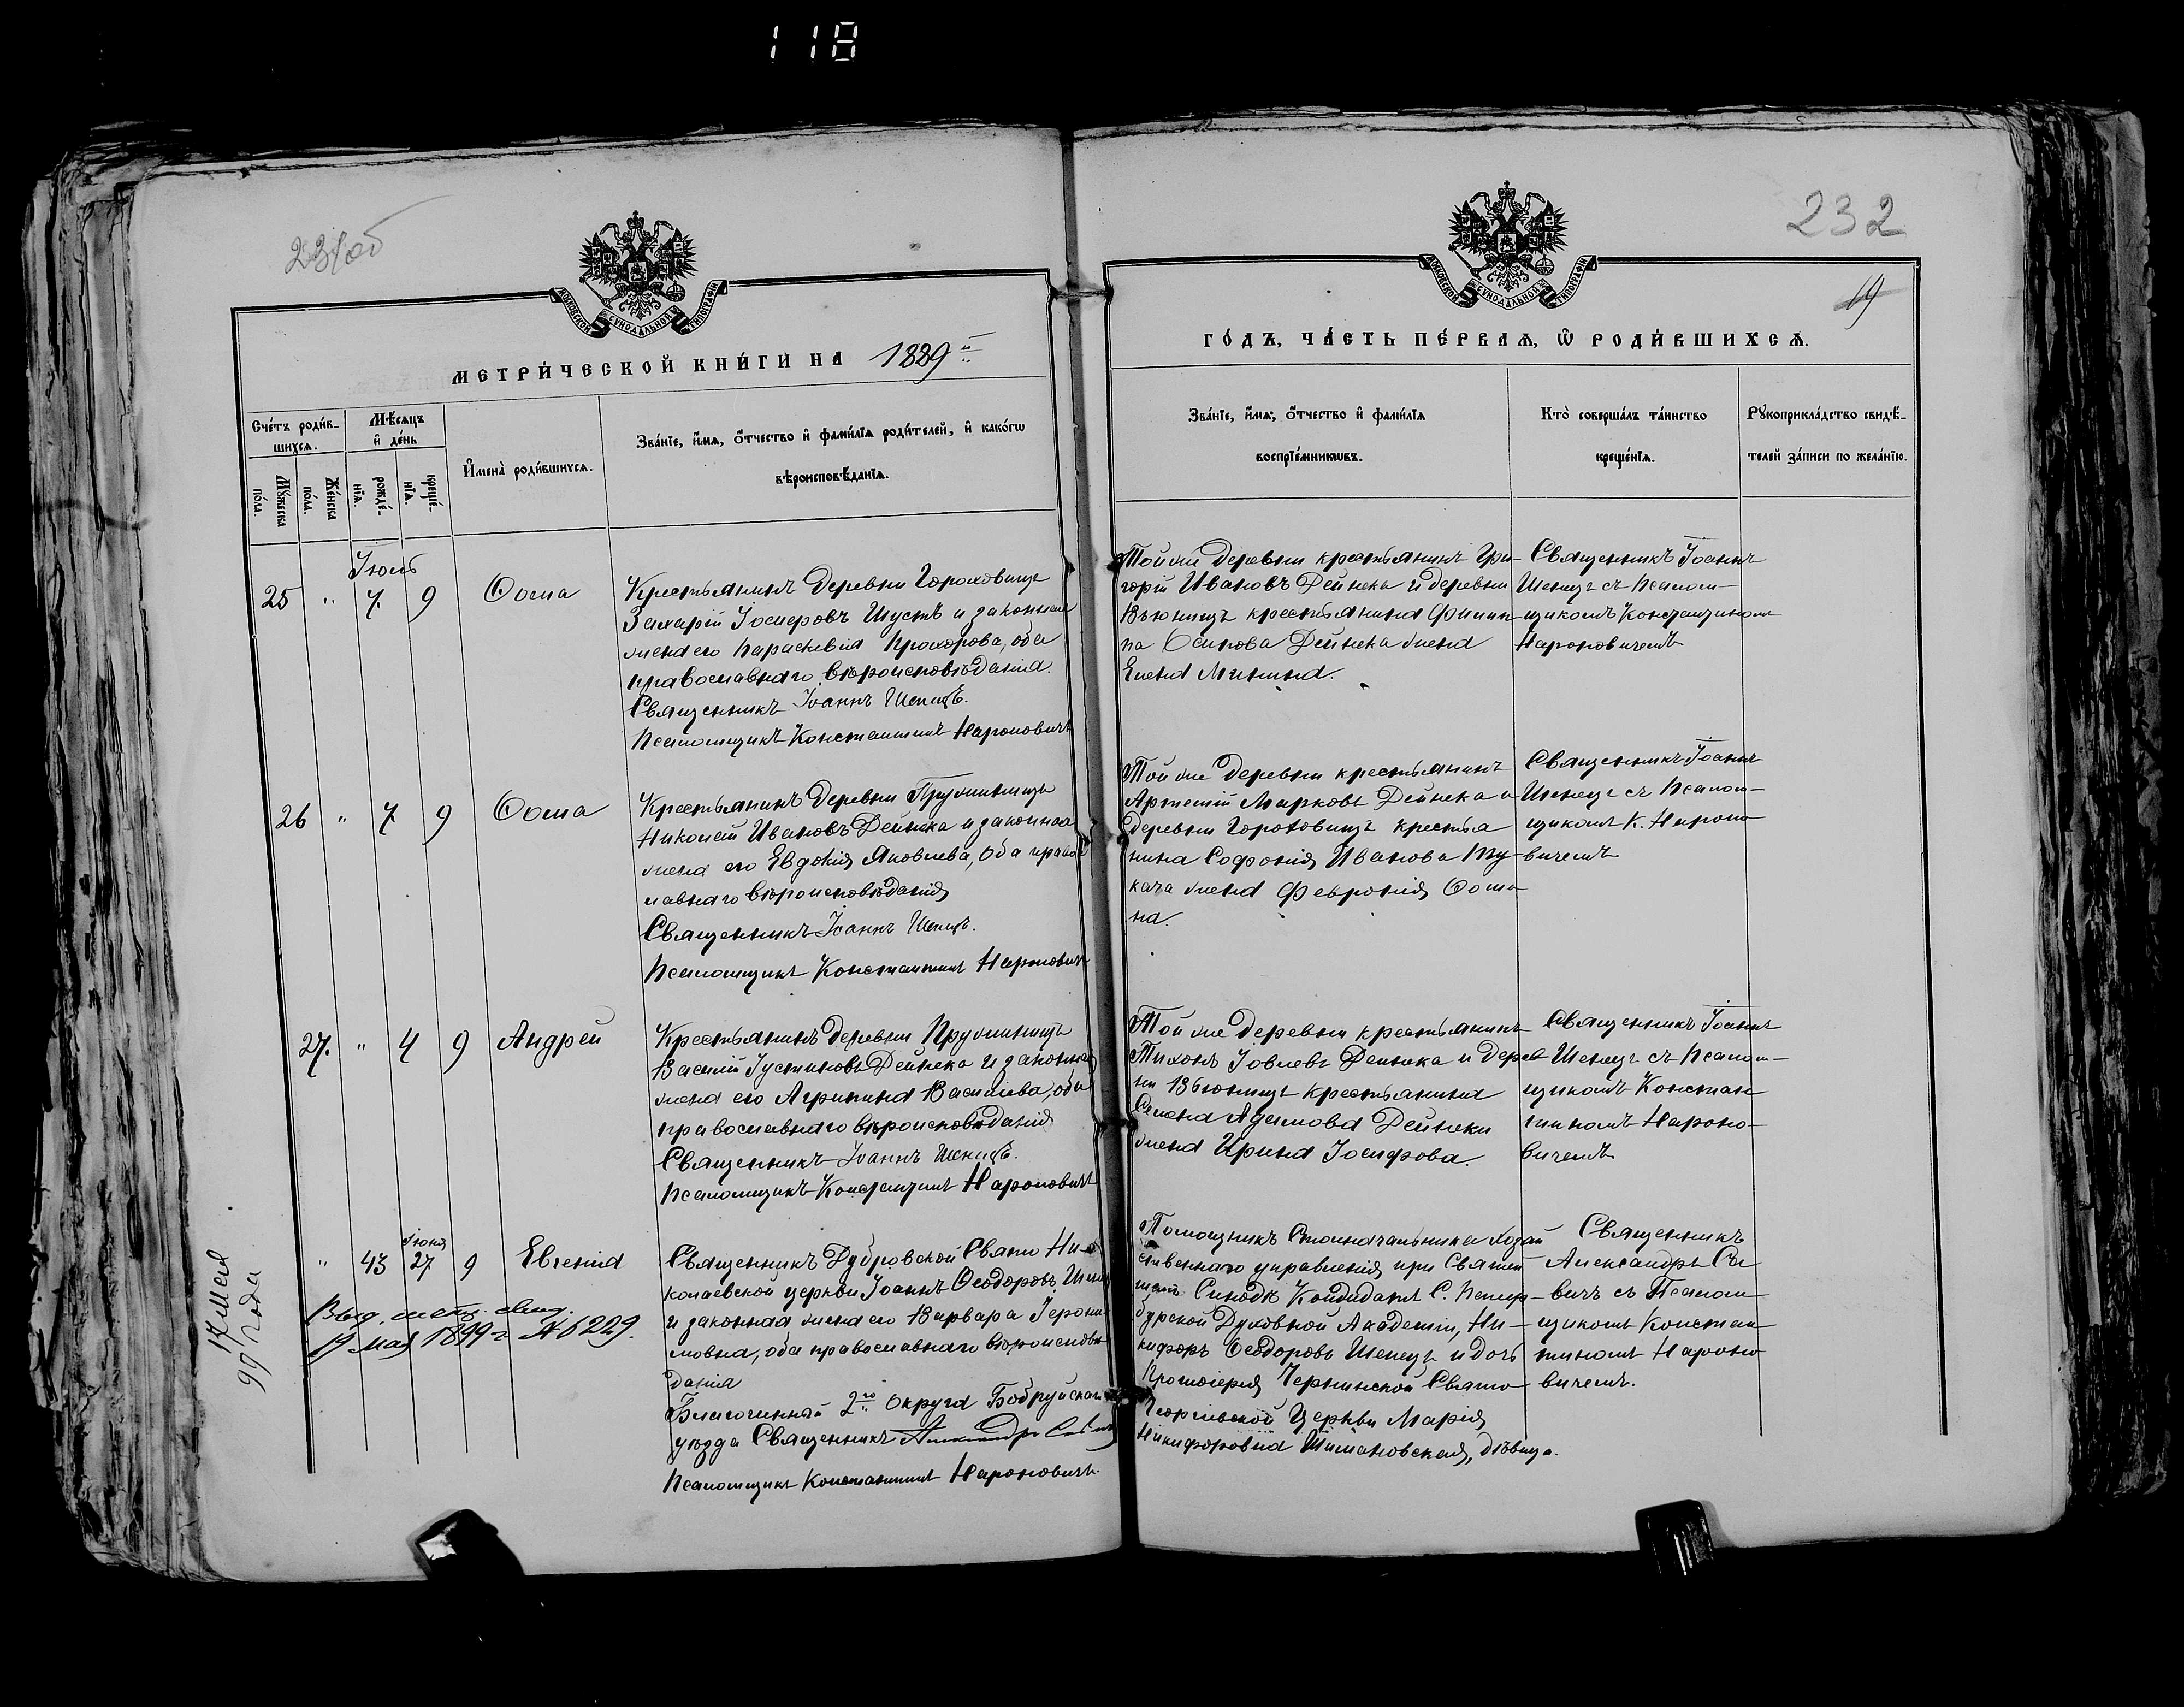 118
231об
232
19
МОСКОВСКОЙ СѴНОДАЛЬНОЙ ТИПОГРАФІИ
МОСКОВСКОЙ СѴНОДАЛЬНОЙ ТИПОГРАФІИ
МЕТРИ́ЧЕСКОЙ КНИ́ГИ НА 1889й
ГО́ДЪ, ЧА́СТЬ ПЕ́РВАѦ, Ѽ РОДИ́ВШИХСѦ.
Сче́тъ роди́в-
шихсѧ.
Мꙋ́жеска
по́ла.
Же́нска
по́ла.
Мѣ́сѧцъ
и҆ де́нь
рожде́-
нїѧ.
креще́-
нїѧ.
И҆мена̀ роди́вшихсѧ.
Зва́нїе, и҆́мѧ, ѻ҆́тчество и҆ фами́лїѧ роди́телей, и҆ како́гѡ
вѣроисповѣ́данїѧ.
Зва́нїе, и҆́мѧ, ѻ҆́тчество и҆ фами́лїѧ
воспрїе́мникѡвъ.
Кто̀ соверша́лъ та́инство
креще́нїѧ.
Рꙋкоприкла́дство свидѣ́-
телей за́писи по жела́нїю.
Іюль
25 " 7. 9 Ѳома
Крестьянинъ деревни Гороховище
Захарій Іосифовъ Шустъ и законная
жена его Параскевія Прохорова, оба
православнаго вѣроисповѣданія.
Священникъ Іоаннъ Шенецъ.
Псаломщикъ Константинъ Нароновичъ
Той же деревни крестьянинъ Гри-
горій Ивановъ Дейнека и деревни
Вьюнищъ крестьянина Филип-
па Осипова Дейнека жена
Елена Минина.
Священникъ Іоаннъ
Шенецъ съ Псалом-
щикомъ Константиномъ
Нароновичемъ
26 " 7 9 Ѳома
Крестьянинъ деревни Пружинищъ
Николай Ивановъ Дейнека и законная
жена его Евдокія Яковлева, оба правос
лавнаго вѣроисповѣданія
Священникъ Іоаннъ Шенецъ.
Псаломщикъ Константинъ Нароновичъ
Той же деревни крестьянинъ
Артемій Марковъ Дейнека и
деревни Гороховищъ крестья
нина Софронія Иванова Ту-
кача жена Февронія Ѳоми
на.
Священникъ Іоаннъ
Шенецъ съ Псалом-
щикомъ К. Нароно
вичемъ
27. " 4 9 Андрей
Крестьянинъ деревни Пружинищъ
Василій Іустиновъ Дейнека и законная
жена его Агрипина Васильева, оба
православнаго вѣроисповѣданія
Священникъ Іоаннъ Шенецъ.
Псаломщикъ Константинъ Нароновичъ
Той же деревни крестьянинъ
Тихонъ Іовлевъ Дейнека и дерев
ни Вьюнищъ крестьянина
Семена Адамова Дейнеки
жена Ирина Іосифова.
Священникъ Іоаннъ
Шенецъ съ Псалом-
щикомъ Констан
тиномъ Нароно-
вичемъ
Іюня
" 43 27 9 Евгенія
Выд. метр. свид.
19 мая 1899 г. № 6229.
17 мая
99 года
Священникъ Дубровской Свято Ни-
колаевской церкви Іоаннъ Ѳеодоровъ Шенецъ
и законная жена его Варвара Іерони
мовна, оба православнаго вѣроисповѣ
данія
Благочинный 2го округа Бобруйскаго
уѣзда Священникъ Александръ
Псаломщикъ Константинъ Нароновичъ.
Помощникъ Столоначальника Хозяй
ственнаго управленія при Святѣй
шемъ Синодѣ Кандидатъ С. Петер-
бурской Духовной Академіи, Ни-
кифоръ Ѳеодоровъ Шенецъ и дочь
Протоіерея Чернинской Свято
Георгіевской Церкви Марія
Никифоровна Шимановская, дѣвица.
Священникъ
Александръ Са
вичъ съ Псалом
щикомъ Констан
тиномъ Нароно
вичемъ.